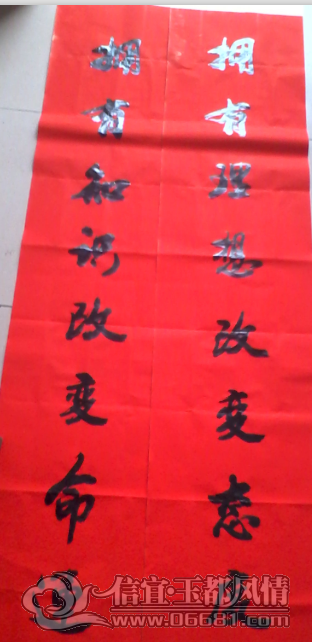 拥有理想改变态度
拥有知识改变命运
信宜·玉都风情
www.06681.com